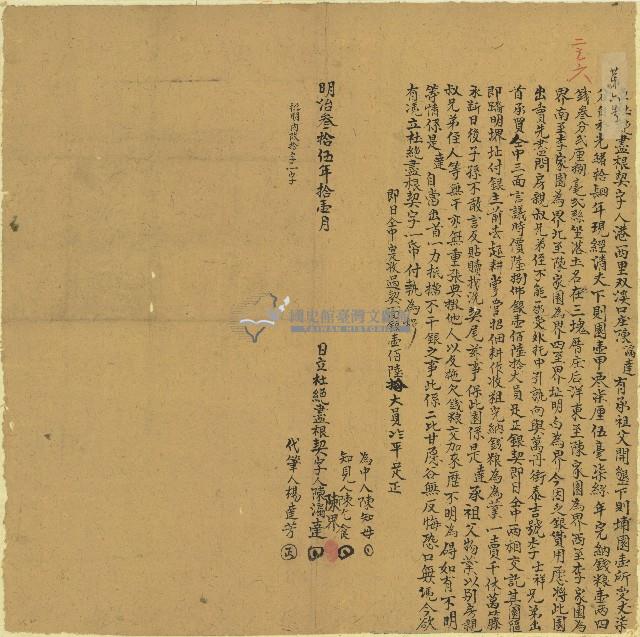 二之六
第六号
盡根契字人港西里双溪口庄陳瀛達有承祖父開墾下則埔園壱所受丈柒
光緒拾年現經清丈下則園壹甲柒厘伍毫柒絲年完納錢粮壹兩四
錢叁分弍厘捌毫弍絲坐港土名在三塊厝庄后洋東至陳家園為界西至李家園為
界南至李家園為界北至陳家園為界四至界址明白為界今因乏銀費用愿將此園
出賣先盡問房親叔兄弟侄不能承受外托中引就向與萬丹街泰吉號李士祥兄弟出
首承買仝中三面言議時價陸捌佛銀壹佰陸拾大員足正銀契即日仝中兩相交訖其園隨
即踏明堺址付銀主前去起耕掌管招佃耕作收租完納錢粮為業一賣千休萬藤
永斷日後子孫不敢言反貼贖找洗契尾等事保此園係是達承祖父物業以別房親
叔兄弟侄人等無干亦無重張典掛他人以及拖欠錢粮交加來歷不明為碍如有不明
等情係是達自當出首一力抵擋不干銀主之事此係二比甘愿各無反悔恐口無憑今欲
有憑立杜絕盡根契字一帋付執為炤
即日仝中寔收過契面銀壹佰陸拾大員平足正
批明內改拾字一字
明治叁拾伍年拾壹月
日立杜絕盡根契字人陳瀛達
為中人陳知母
知見人陳允食
陳界
代筆人楊達芳
國史館臺灣文獻館
TAIWAN HISTORICA